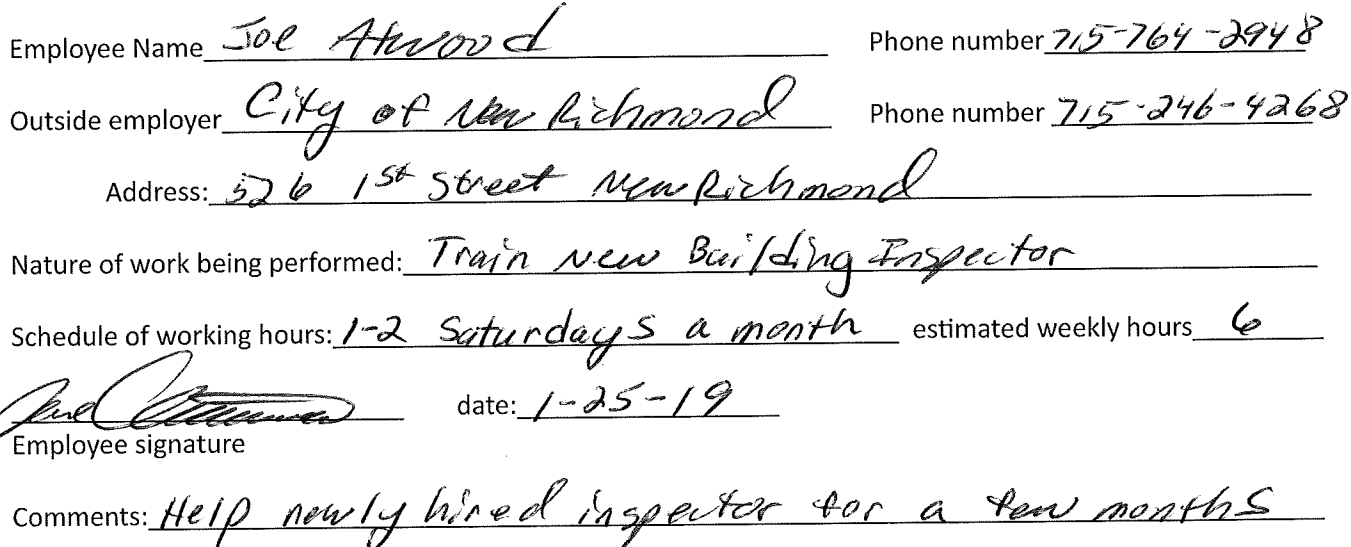 Employee Name Joe Atwood Phone number 715-764-2948
Outside employer City of New Richmond Phone number 715-246-4268
Address: 526 1st Street New Richmond
Nature of work being performed: Train New Building Inspector
Schedule of working hours: 1-2 Saturdays a month estimated weekly hours 6
date: 1-25-19
Employee signature
Comments: Help newly hired inspector for a few months